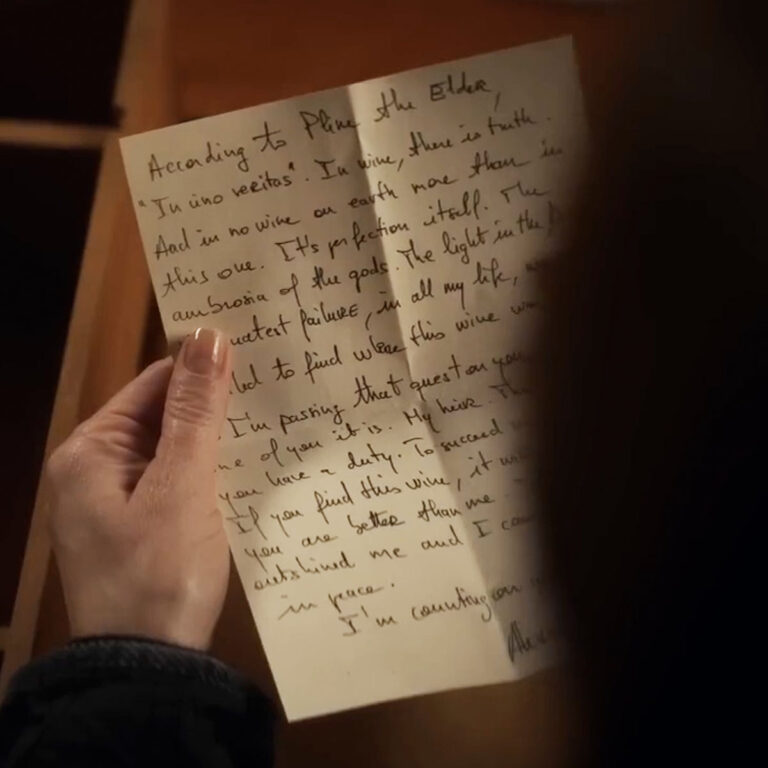 According to Pline the Elder,
"In uno veritas". In wine, there is truth.
And in no wine on earth more than in
this one. It's perfection itself. The
ambrosia of the gods. The light in the
failure, in all my life,
to find where this wine
I'm passing that quest on
of you it is. My heir.
you have a duty. To succeed
If you find this wine, it
you are better than me.
outshined me and I
in peace.
I'm counting on